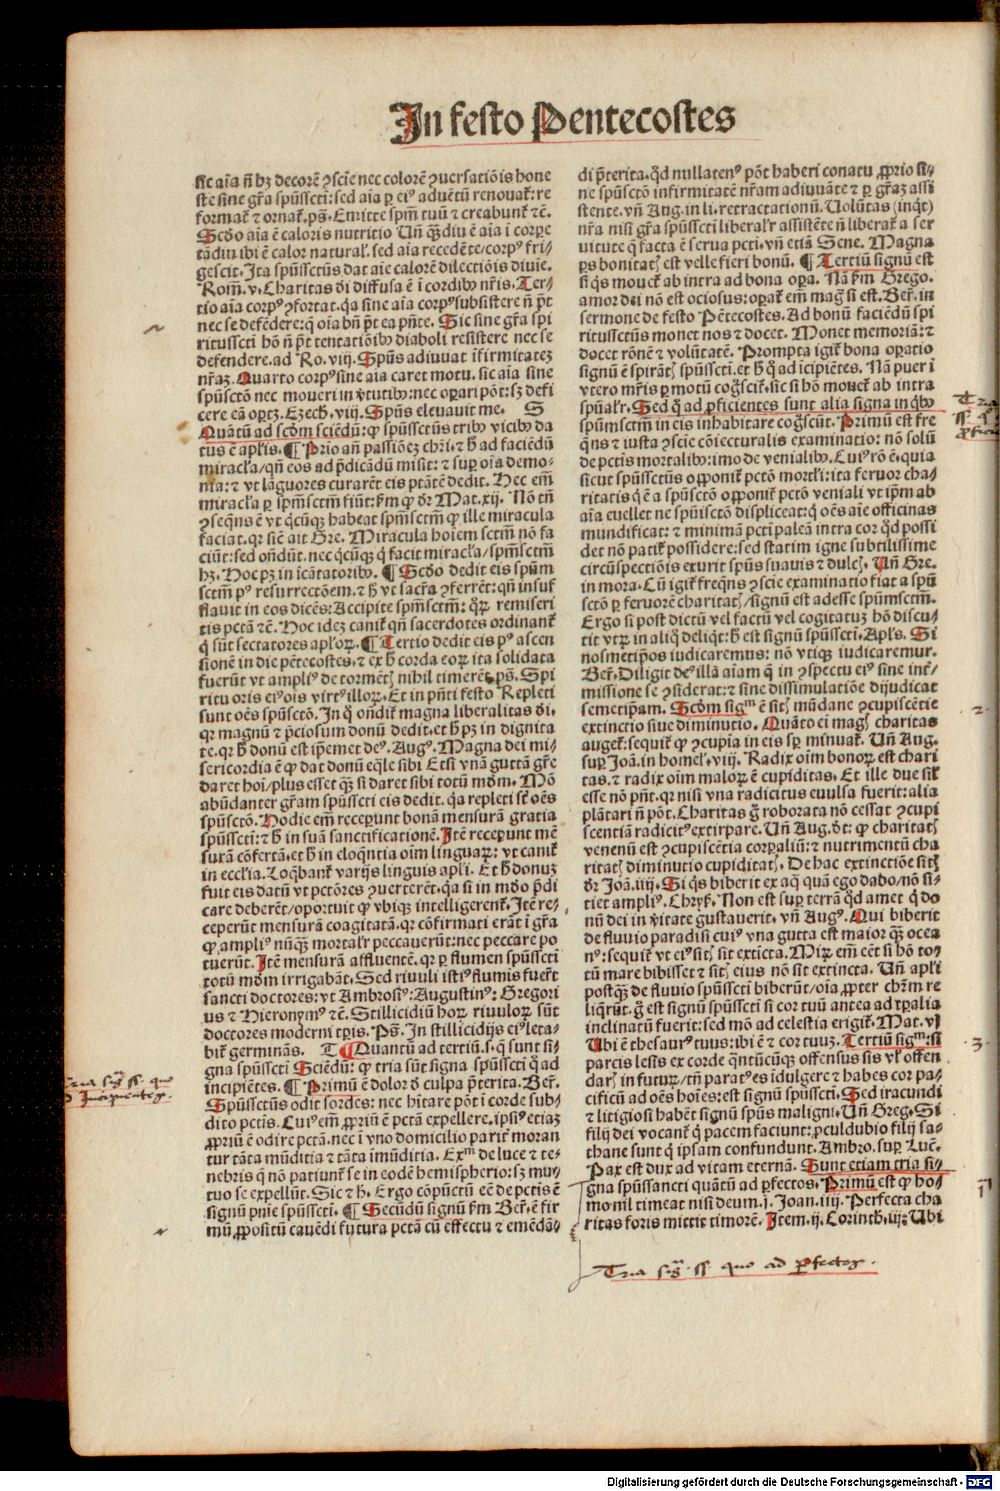 In festo Pentecostes
sic aīa nō hȝ decorē ꝯscīe nec colorē ꝯuersatiōis hone
ste sine gr̄a spūssctī: sed aīa per ei⁹ aduētū renouat̄: re
format̄ ⁊ ornat̄. ps. Emitte spm̄ tuū ⁊ creabunt̄ ⁊c̄.
Scd̄o aīa ē caloris nutritio Vn̄ qͣdiu ē aīa ī corpe
tādiu ibi ē calor natural̄. sed aīa recedēte/corp⁹ fri-
gescit. Ita spūssctūs dat aīe calorē dilectiōis diuīe.
Rom̄. v. Charitas dī diffusa ē ī cordibꝰ nr̄is. Ter-
tio aīa corp⁹ ꝯfortat. qa sine aīa corp⁹ subsistere nō p̄t
nec se defēdere: qͦ aīa bn̄ p̄t ea pn̄te. Sic sine gr̄a spi
ritusscti hō nō p̄t tentatiōibꝰ diaboli resistere nec se
defendere. ad Ro. viij. Spūs adiuuat īfirmitateȝ
nr̄aȝ. Quarto corp⁹ sine aīa caret motu. sic aīa sine
spūsctō nec moueri pōt īn v̄tutibꝰ: nec opari pōt: sȝ defi
cere eā oportȝ. Ezech. viij. Spūs eleuauit me. S
Quātū ad scd̄m sciēdū: qꝫ spūssctūs tribꝰ vicibꝰ da
tus ē apl̄is. ¶ Prīo an̄ passiōeȝ chr̄i. ⁊ h̄ ad faciēdū
miracl̄a/qn̄ eos ad p̄dicādū misit: ⁊ sup oīa demo-
nia: ⁊ vt lāguores curarēt eis p̄tātē dedit. Hec em̄
miracl̄a per spm̄sctm̄ fiūt: fm̄ qꝫ dr̄ Mat. xij. Nō tn̄
ꝯseqn̄s ē vt qͥcūqꝫ habeat spm̄sctm̄ qꝫ ille miracula
faciat. qr sic̄ ait Gre. Miracula hoīem sctm̄ nō fa
ciūt: sed on̄dūt. nec qͥcūqꝫ qͥ facit miracl̄a/spm̄sctm̄
hȝ. Hoc pȝ in īcātatoribꝰ. ¶ Scd̄o dedit eis spūm
sctm̄ p⁹ resurrectōem. ⁊ h̄ vt sacr̄a ꝯferrēt: qn̄ insuf
flauit in eos dicēs: Accipite spm̄sctm̄: qͦꝝ remiseri
tis pctā ⁊c̄. Hoc ideȝ canit̄ qn̄ sacerdotes ordinant̄
qͥ sūt sectatores apl̄oꝝ. ¶ Tertio dedit eis p⁹ ascen
sionē in die pētecostes. ⁊ ex h̄ corda eoꝝ ita solidata
fuerūt vt ampli⁹ de tormētꝭ nihil timerēt. ps. Spi
ritu oris ei⁹ oīs virt⁹ illoꝝ. Et in pn̄ti festo Repleti
sunt oēs spūsctō. In qͦ on̄dit̄ magna liberalitas di.
qr magnū ⁊ p̄ciosum donū dedit. et h̄ pȝ in dignita
te. qr h̄ donū est ip̄emet de⁹. Aug⁹. Magna dei mi-
sericordia ē qꝫ dat donū eqͣle sibi Etsi vnā guttā gr̄e
daret hoī/plus esset qͣꝫ si daret sibi totū mdm̄. Mō
abūdanter gr̄am spūsscti eis dedit. qa repleti st̄ oēs
spūsctō. Hodie em̄ receperunt bonā mensurā gratia
spūsscti: ⁊ h̄ in suā sanctificationē. Itē receperunt mē
surā cōfertā. et h̄ in eloqn̄tia oīm linguaꝝ: vt canit̄
in eccl̄ia. Loqͣbant̄ varijs linguis apl̄i. Et h̄ donuȝ
fuit eis datū vt pctōres ꝯuerterēt. qa si in mdo p̄di
care deberēt/oportuit qꝫ vbiqꝫ intelligerent̄. Itē re-
ceperūt mensurā coagitatā. qr cōfirmati erāt ī gr̄a
qꝫ ampli⁹ nūqͣꝫ mortal̄r peccauerūt: nec peccare po
tuerūt. Itē mensurā affluentē. qr per flumen spūsscti
totū mdm̄ irrigabāt. Sed riuuli isti⁹ flumīs fuer̄t
sancti doctores: vt Ambrosi⁹: Augustin⁹: Gregori
us ⁊ Hieronym⁹ ⁊c̄. Stillicidiū hoꝝ riuuloꝝ sūt
doctores moderni tp̄is. Ps. In stillicidijs ei⁹ leta-
bit̄ germināns. T ¶ Quantū ad tertiū. s. qͣ sunt si-
gna spūsscti Sciēdū: qꝫ tria sūt signa spūsscti qͦad
incipiētes. ¶ Primū ē dolor dͤ culpa p̄terita. Ber.
Spūssctūs odit sordes: nec hītare pōt ī corde sub-
dito pctīs. Cui⁹ em̄ ꝓpriū ē pctā expellere. ipsi⁹ etiaȝ
ꝓpriū ē odire pctā. nec ī vno domicilio parit̄ moran
tur tāta mūditia ⁊ tāta īmūditia. Exm̄ de luce ⁊ te-
nebris qͥ nō patiunt̄ se in eodē hemispherio: sȝ mu-
tuo se expellūt. Sic ⁊ h̄. Ergo cōpūctū eē de pctīs ē
signū pn̄ie spūsscti. ¶ Secūdū signū fm̄ Ber. ē fir
mū ꝓpositū cauēdi futura pctā cū effectu ⁊ emēdā-
di p̄terita. qd̄ nullaten⁹ pōt haberi conatu ꝓprio si-
ne spūsctō infirmitatē nr̄am adiuuāte ⁊ per gr̄aȝ assi
stente. vn̄ Aug. in li. retractationū. Volūtas (inqͥt)
nr̄a nisi gr̄a spūsscti liberal̄r assistēte nō liberat̄ a ser
uitute qͣ facta ē serua pcti. vn̄ etiā Sene. Magna
ps bonitatꝭ est velle fieri bonū. ¶ Tertiū signū est
si qͥs mouet̄ ab intra ad bona opera. Nā fm̄ Grego.
amor dei nō est ociosus: operat̄ em̄ magͣ si est. Ber. in
sermone de festo Pētecostes. Ad bonū faciēdū spi
ritussctūs monet nos ⁊ docet. Monet memoriā: ⁊
docet rōnē ⁊ volūtatē. Prompta igit̄ bona operatio
signū ē spirātꝭ spūsscti. et h̄ qͦ ad īcipiētes. Nā puer ī
vtero mr̄is per motū cogͦscit̄. sic si hō mouet̄ ab intra
spūal̄r. Sed qͦ ad ꝓficientes sunt alia signa in qͥbꝰ
spūmsctm̄ in eis inhabitare cogͦscūt. Primū est fre
qn̄s ⁊ iusta ꝯscīe cōiecturalis examinatio: nō solū
de pctīs mortalibꝰ: imo de venialibꝰ. Cui⁹ rō ē. quia
sicut spūssctūs opponit̄ pctō mortl̄i: ita feruor cha-
ritatis qͥ ē a spūsctō opponit̄ pctō veniali vt ip̄m ab
aīa euellet ne spūisctō displiceat: qͥ oēs aīe officinas
mundificat: ⁊ minimā pcti paleā intra cor qd̄ possi
det nō patit̄ possidere: sed statim igne subtilissime
circūspectiōis exurit spūs suauis ⁊ dulcꝭ. Vn̄ Gre.
in mora. Cū igit̄ freqn̄s ꝯscīe examinatio fiat a spū
sctō per feruorē charitatꝭ/signū est adesse spūmsctm̄.
Ergo si post dictū vel factū vel cogitatuȝ hō discu-
tit vtꝝ in aliqͦ deliqͥt: h̄ est signū spūsscti. Apl̄s. Si
nosmetip̄os iudicaremus: nō vtiqꝫ iudicaremur.
Ber. Diligit de⁹ illā aīam qͣ in ꝯspectu ei⁹ sine int̄-
missione se ꝯsiderat: ⁊ sine dissimulatiōe dijudicat
semetip̄am. Scd̄m sigᵐ ē sitꝭ mūdane ꝯcupiscētie
extinctio siue diminutio. Quāto ei magꝭ charitas
auget̄: sequit̄ qꝫ ꝯcupīa in eis sp̄ minuat̄. Vn̄ Aug.
sup Joā. in homel̄. viij. Radix oīm bonoꝝ est chari
tas. ⁊ radix oīm maloꝝ ē cupiditas. Et ille due sil̄
esse nō pn̄t. qr nisi vna radicitus euulsa fuerit: alia
plātari nō pōt. Charitas gͦ roborata nō cessat ꝯcupi
scentiā radicit⁹ extirpare. Vn̄ Aug. dt: qꝫ charitatꝭ
venenū est ꝯcupiscētia corpaliū: ⁊ nutrimentū cha
ritatꝭ diminutio cupiditatꝭ. De hac extinctiōe sitꝭ
dr̄ Joā. iiij. Si qͥs biberit ex aqͣ quā ego dabo/nō si-
tiet ampli⁹. Chrys. Non est sup terrā qd̄ amet qͥ do
nū dei in v̄itate gustauerit. vn̄ Aug⁹. Qui biberit
de fluuio paradisi cui⁹ vna gutta est maior qͣꝫ ocea
n⁹: sequit̄ vt ei⁹ sitꝭ sit extīcta. Miꝝ em̄ eēt si hō to-
tū mare bibisset ⁊ sitꝭ eius nō sit extincta. Vn̄ apl̄i
postqͣꝫ de fluuio spūsscti biberūt/oīa ꝓpter chr̄m re
liqr̄ūt. gͦ est signū spūsscti si cor tuū antea ad tp̄alia
inclinatū fuerit: sed mō ad celestia erigit̄. Mat. vj
Vbi ē thesaur⁹ tuus: ibi ē ⁊ cor tuuȝ. Tertiū sigᵐ: si
parcis lesis ex corde qn̄tūcūqꝫ offensus sis vl̄ offen
darꝭ in futuꝝ/tn̄ parat⁹ es īdulgere ⁊ habes cor pa-
cificū ad oēs hoīes: est signū spūsscti. Sed iracundi
⁊ litigiosi habēt signū spūs maligni. Vn̄ Greg. Si
filij dei vocant̄ qͥ pacem faciunt: ꝓculdubio filij sa-
thane sunt qͥ ipsam confundunt. Ambro. sup Luc̄.
Pax est dux ad vitam eternā. Sunt etiam tria si-
gna spūssancti quātū ad ꝑfectos. Primū est qꝫ ho-
mo nil timeat nisi deum. j. Joan. iiij. Perfecta cha
ritas foris mittit timorē. Item. ij. Corinth. iij: Vbi
2.
3.
Tria sigͣ ss. quo ad ꝑfectos.